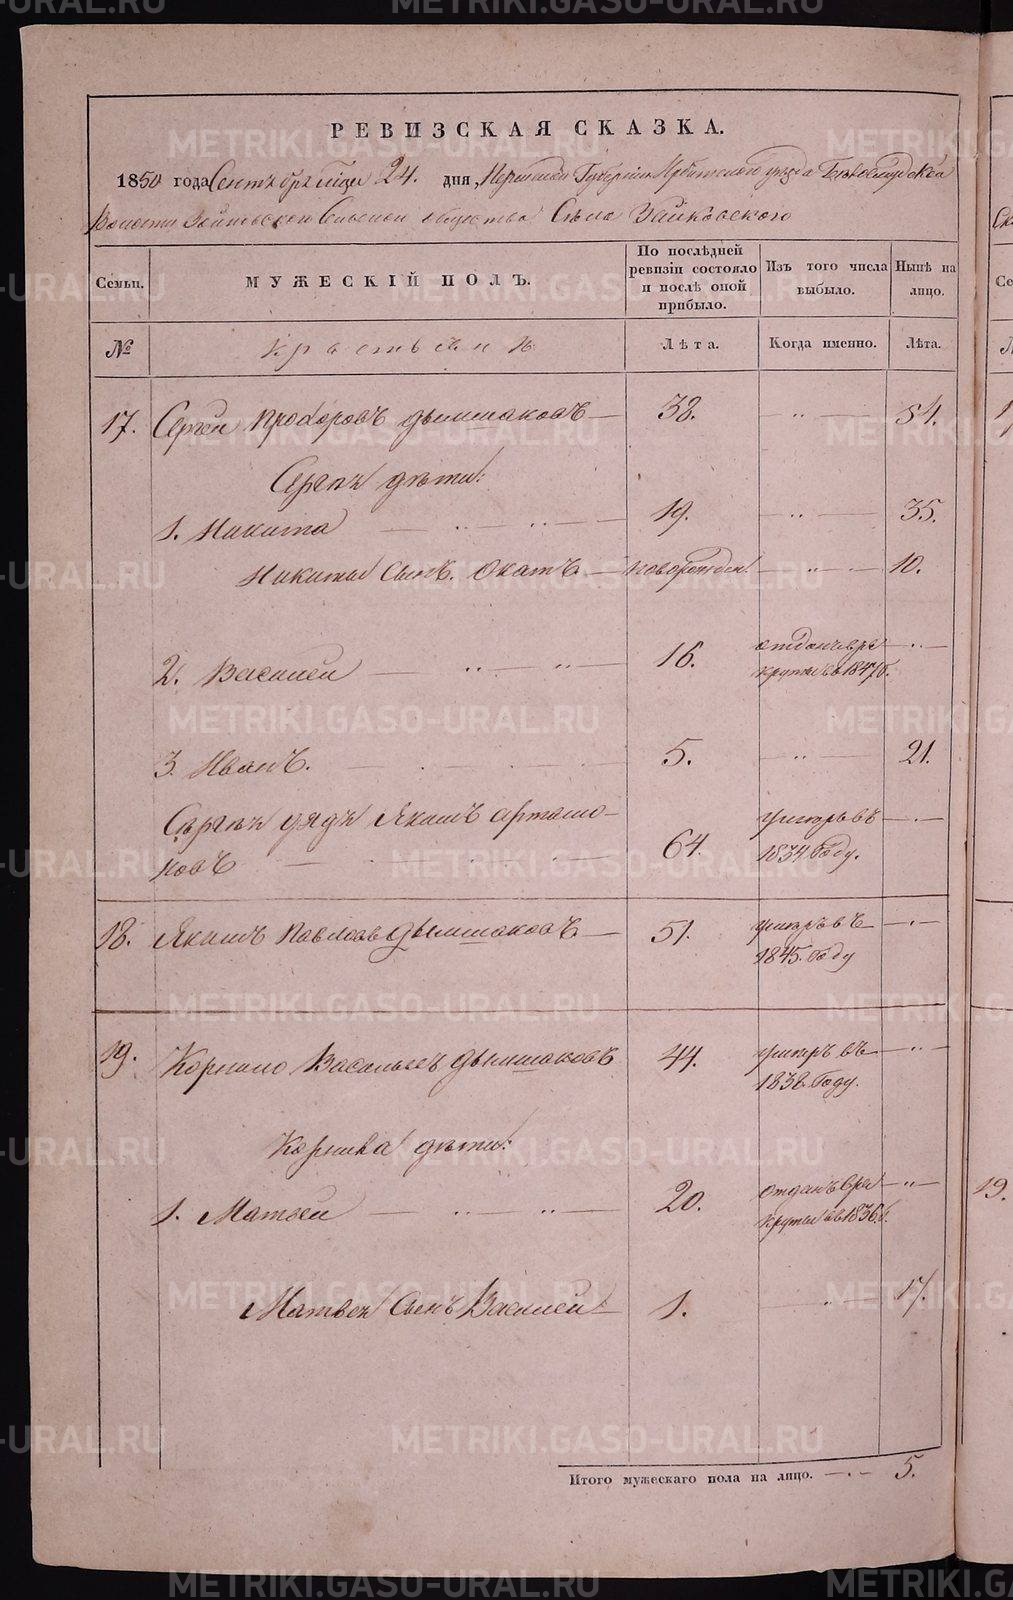 РЕВИЗСКАЯ СКАЗКА.
1850 года Сентября месяца 24. дня, Пермской Губернии Ирбитского уезда Белослудской
Волости Зайковского Сельского общества Села Зайковского
Семьи.
МУЖЕСКІЙ ПОЛЪ.
По послѣдней ревизіи состояло и послѣ оной прибыло.
Изъ того числа выбыло.
Нынѣ на лицо.
№
Крестьяне
Лѣта.
Когда именно.
Лѣта.
17. Сергей Прохоровъ Дымшаковъ — 38. — " — 54.
Сергея дѣти:
1. Никита — " — " — 19. — " — 35.
Никиты Сынъ. Окатъ. — новорожден. — " — 10.
2. Василей — " — " — 16. отданъ в ре- — " —
круты въ 1847 г.
3. Иванъ. — 5. — " — 21.
Сергея дядя Якимъ Артамо- умеръ въ — " —
новъ — 64. 1834. Году.
18. Якимъ Павловъ Дымшаковъ — 51. умеръ въ — " —
1845. Году
19. Корнило Васильевъ Дымшаковъ 44. умеръ въ — " —
1838. Году.
Корнила дѣти:
1. Матвей — " — " — 20. отданъ в ре- — " —
круты въ 1836 г.
Матвея Сынъ Василей — 1. " 17.
Итого мужескаго пола на лицо. — " — 5.
19.
METRIKI.GASO-URAL.RU